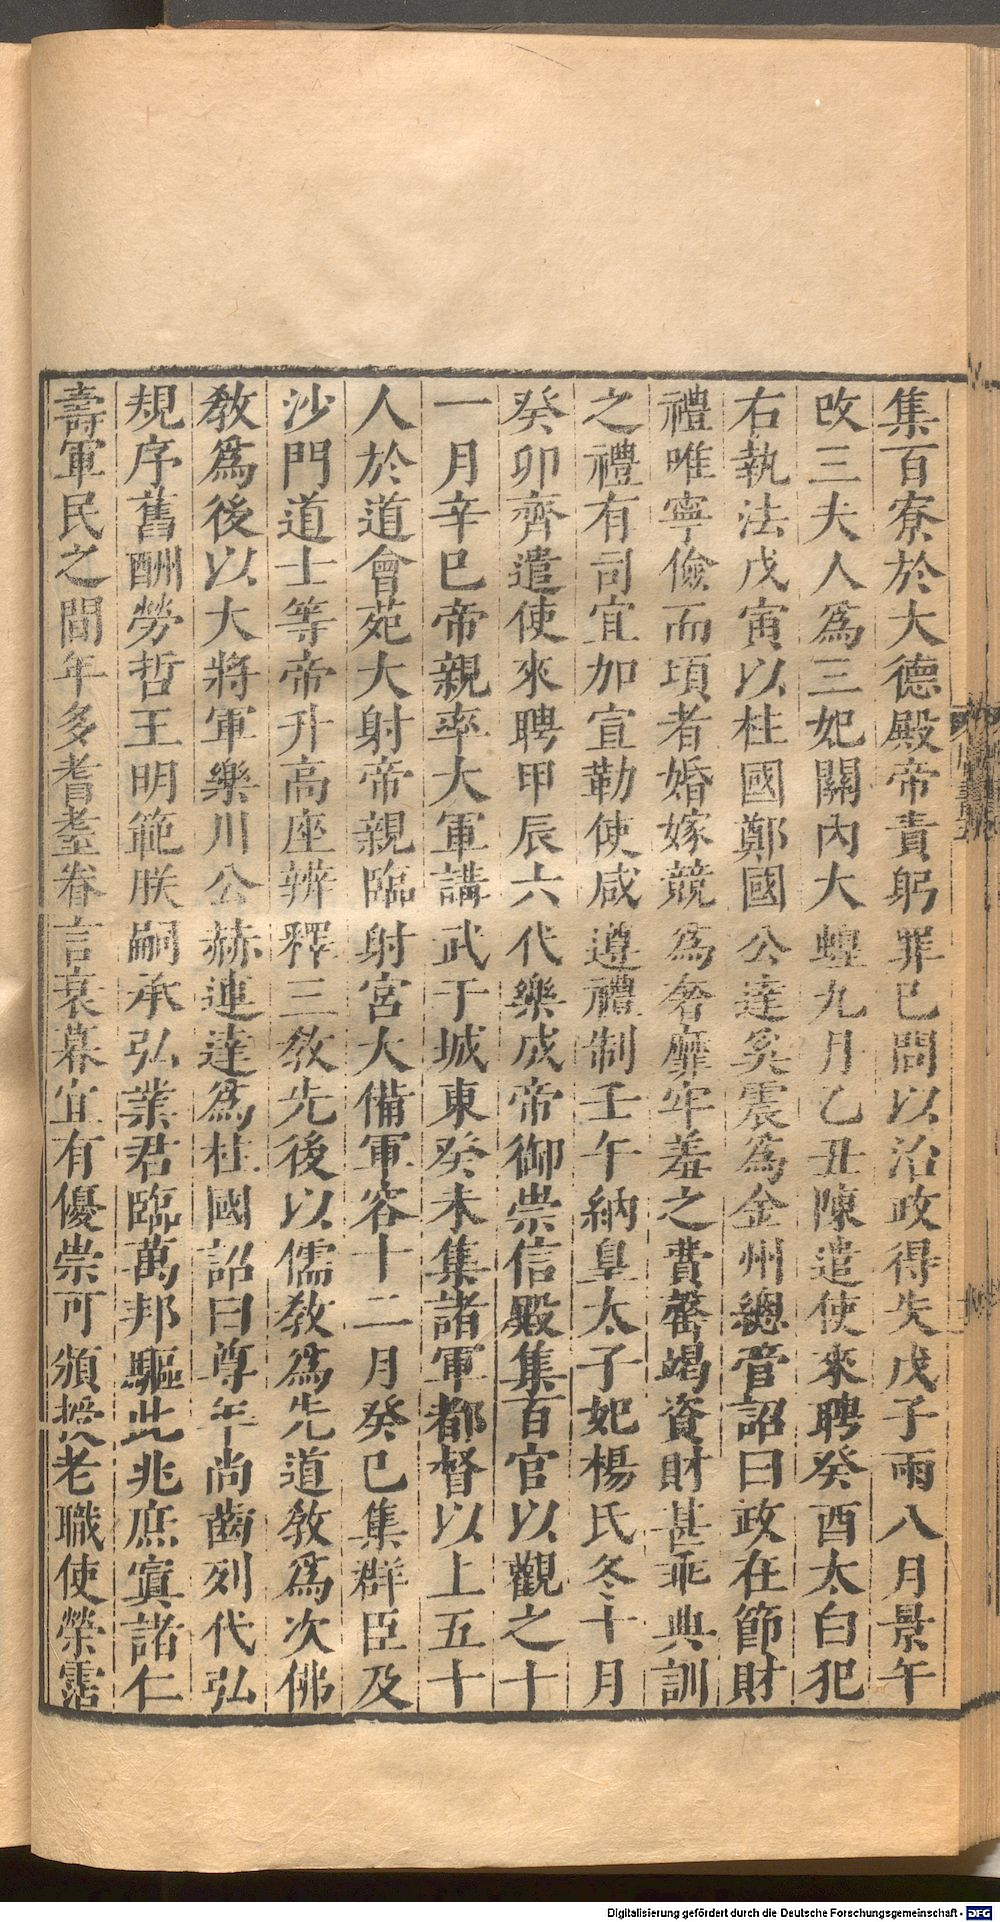 集百寮於大德殿帝責躬罪已問以治政得失戊子雨八月景午
改三夫人爲三妃關內大蝗九月乙丑陳遣使來聘癸酉太白犯
右執法戊寅以柱國鄭國公達奚震爲金州總管詔曰政在節財
禮唯寧儉而頃者婚嫁競爲奢靡牢羞之費罄竭資財甚乖典訓
之禮有司宜加宣勒使咸遵禮制壬午納皇太子妃楊氏冬十月
癸卯齊遣使來聘甲辰六代樂成帝御崇信殿集百官以觀之十
一月辛巳帝親率大軍講武于城東癸未集諸軍都督以上五十
人於道會苑大射帝親臨射宮大備軍容十二月癸巳集群臣及
沙門道士等帝升高座辨釋三敎先後以儒敎爲先道敎爲次佛
敎爲後以大將軍樂川公赫連達爲柱國詔曰尊年尚齒列代弘
規序舊酬勞哲王明範朕嗣承弘業君臨萬邦驅此兆庶寘諸仁
壽軍民之間年多耆耋眷言衰暮宜有優崇可頒授老職使榮霑
Digitalisierung gefördert durch die Deutsche Forschungsgemeinschaft - DFG